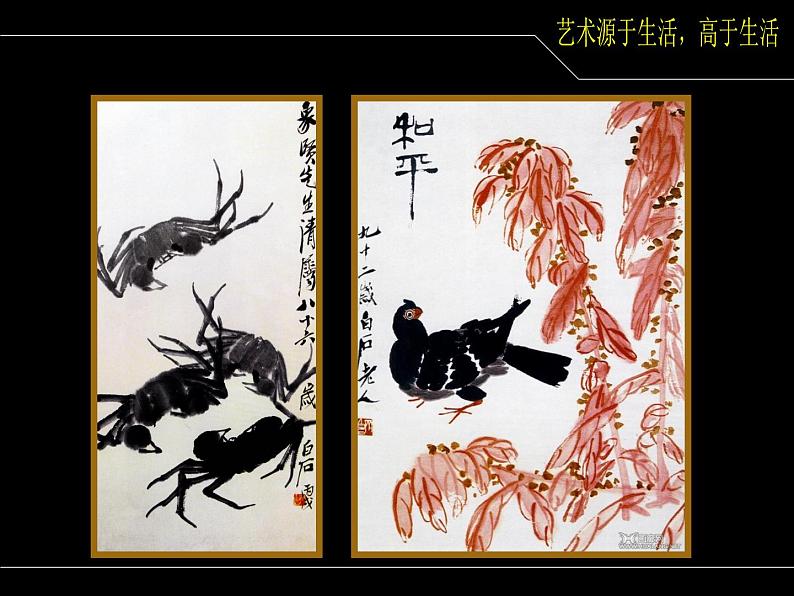 艺术源于生活，高于生活
象贤先生清属八十六岁白石
和平
九十二岁白石老人